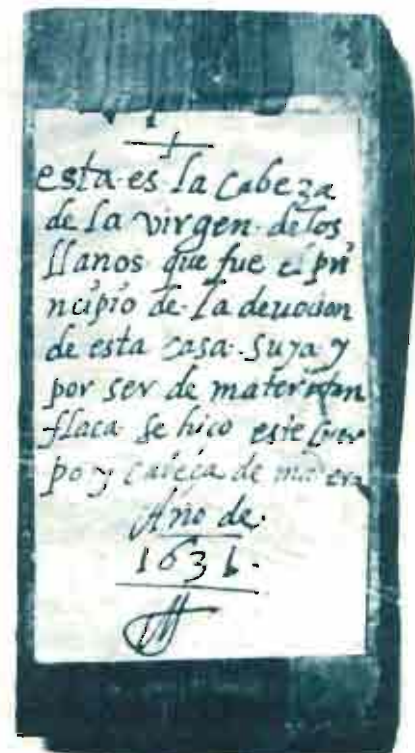 esta es la cabeza
de la virgen de los
llanos que fue el pri
ncipio de la deuocion
de esta casa suya y
por ser de materia tan
flaca se hiço este cuer
po y cabeça de madera
Año de
1631